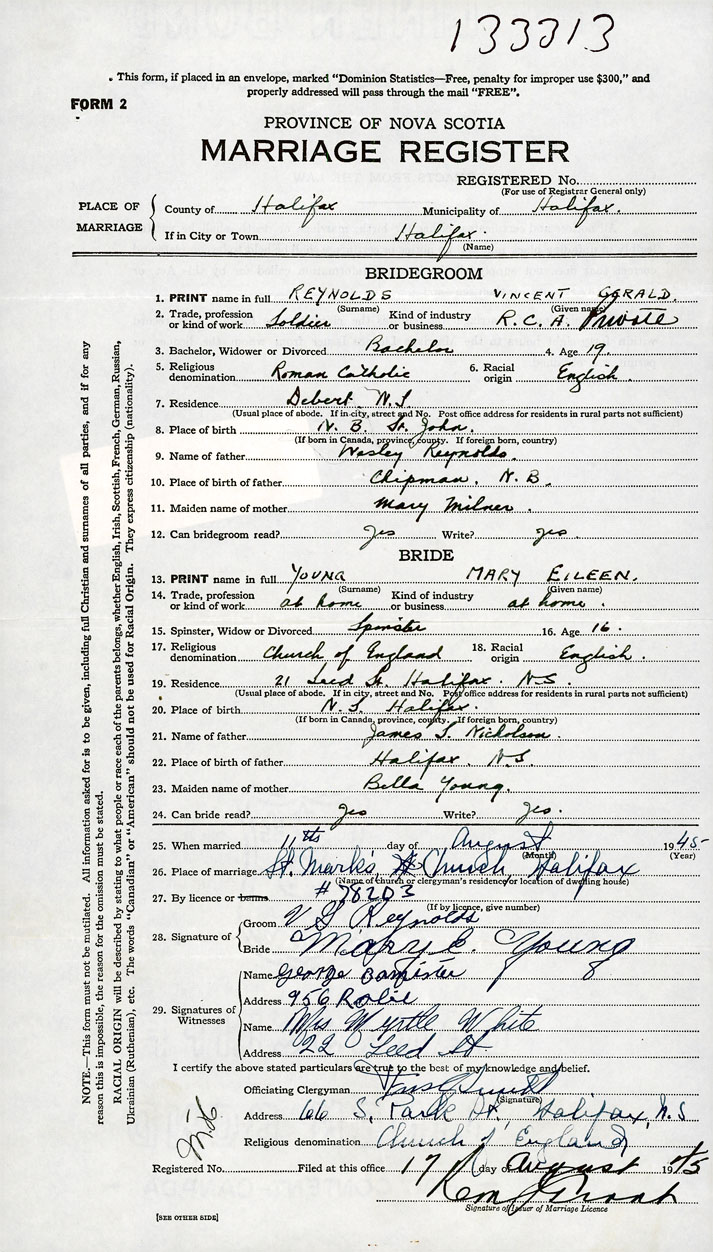 133313
. This form, if placed in an envelope, marked “Dominion Statistics—Free, penalty for improper use $300,” and
properly addressed will pass through the mail “FREE”.
FORM 2
PROVINCE OF NOVA SCOTIA
MARRIAGE REGISTER
REGISTERED No.
(For use of Registrar General only)
PLACE OF MARRIAGE
County of Halifax Municipality of Halifax.
If in City or Town Halifax.
(Name)
BRIDEGROOM
1. PRINT name in full REYNOLDS VINCENT GERALD.
(Surname) (Given name)
2. Trade, profession or kind of work Soldier Kind of industry or business R. C. A. Private
3. Bachelor, Widower or Divorced Bachelor 4. Age 19.
5. Religious denomination Roman Catholic 6. Racial origin English.
7. Residence Debert N.S.
(Usual place of abode. If in city, street and No. Post office address for residents in rural parts not sufficient)
8. Place of birth N. B. St. John.
(If born in Canada, province, county. If foreign born, country)
9. Name of father Wesley Reynolds.
10. Place of birth of father Chipman, N. B.
11. Maiden name of mother Mary Milner.
12. Can bridegroom read? Yes Write? Yes.
BRIDE
13. PRINT name in full YOUNG MARY EILEEN.
(Surname) (Given name)
14. Trade, profession or kind of work at home Kind of industry or business at home.
15. Spinster, Widow or Divorced Spinster 16. Age 16.
17. Religious denomination Church of England 18. Racial origin English.
19. Residence 21 Leed St. Halifax. N.S.
(Usual place of abode. If in city, street and No. Post office address for residents in rural parts not sufficient)
20. Place of birth N. S. Halifax.
(If born in Canada, province, county. If foreign born, country)
21. Name of father James S. Nicholson.
22. Place of birth of father Halifax. N.S.
23. Maiden name of mother Bella Young.
24. Can bride read? Yes Write? Yes.
25. When married 11th day of August 1945
(Month) (Year)
26. Place of marriage St. Mark's Church, Halifax
(Name of church or clergyman's residence or location of dwelling house)
27. By licence or banns #78203
(If by licence, give number)
28. Signature of
Groom V G Reynolds
Bride Mary E. Young
29. Signatures of Witnesses
Name George Bannister
Address 956 Robie
Name Mrs Myrtle White
Address 22 Leed St.
I certify the above stated particulars are true to the best of my knowledge and belief.
Officiating Clergyman
(Signature)
Address 66 S. Park St, Halifax, N.S
Religious denomination Church of England
Registered No. Filed at this office 17 day of August 1945
Signature of Issuer of Marriage Licence
[SEE OTHER SIDE]
NOTE.—This form must not be mutilated. All information asked for is to be given, including full Christian and surnames of all parties, and if for any
reason this is impossible, the reason for the omission must be stated.
RACIAL ORIGIN will be described by stating to what people or race each of the parents belongs, whether English, Irish, Scottish, French, German, Russian,
Ukrainian (Ruthenian), etc. The words “Canadian” or “American” should not be used for Racial Origin. They express citizenship (nationality).